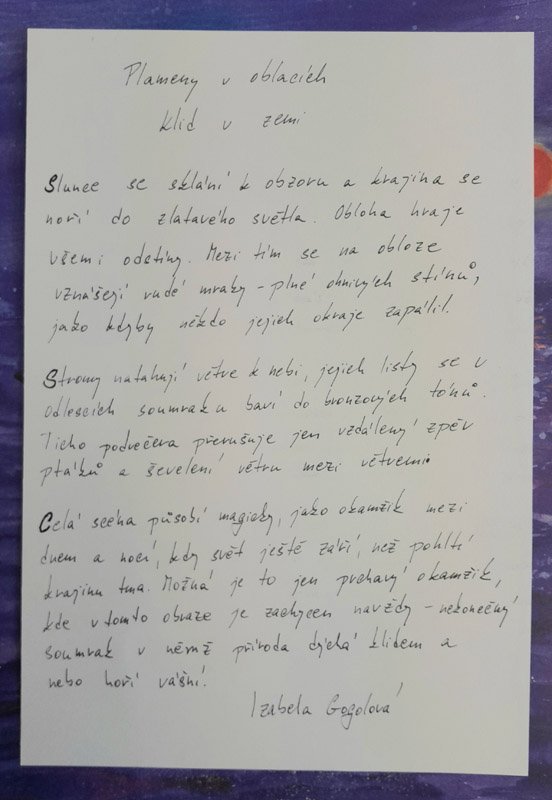 Plameny v oblacích
klid v zemi
Slunce se sklání k obzoru a krajina se
noří do zlatavého světla. Obloha hraje
všemi odstíny. Mezi tím se na obloze
vznášejí rudé mraky - plné ohnivých stínů,
jako kdyby někdo jejich okraje zapálil.
Stromy natahují větve k nebi, jejich listy se v
odlescích soumraku barví do bronzových tónů.
Ticho podvečera přerušuje jen vzdálený zpěv
ptáků a ševelení větru mezi větvemi.
Celá scéna působí magicky, jako okamžik mezi
dnem a nocí, kdy svět ještě září, než pohltí
krajinu tma. Možná je to jen prchavý okamžik,
kde v tomto obraze je zachycen navždy - nekonečný
soumrak v němž příroda dýchá klidem a
nebo hoří vášní.
Izabela Gogolová